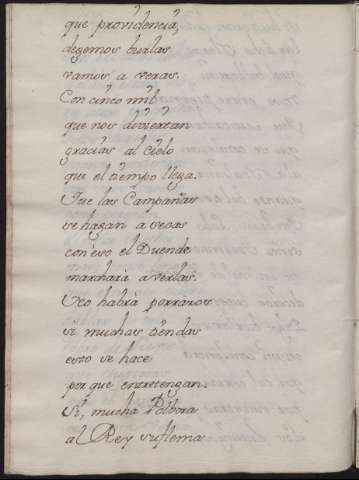 que providencia,
degemos burlas
vamos a veras.
Con cinco mil
que nos adviertan
gracias al cielo
que el tiempo llega.
Que las Campañas
se hagan a secas
con eso el Duende
marchará a verlas.
Uco habrá porrazos
si muchas tiendas
esto se hace
por que entretengan.
Si, mucha Polbora
al Rey suflema